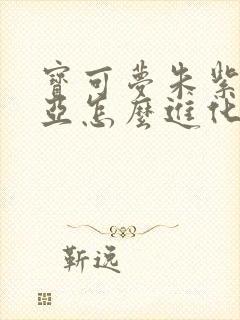 寶可夢朱紫
亞怎麼進化
靳远